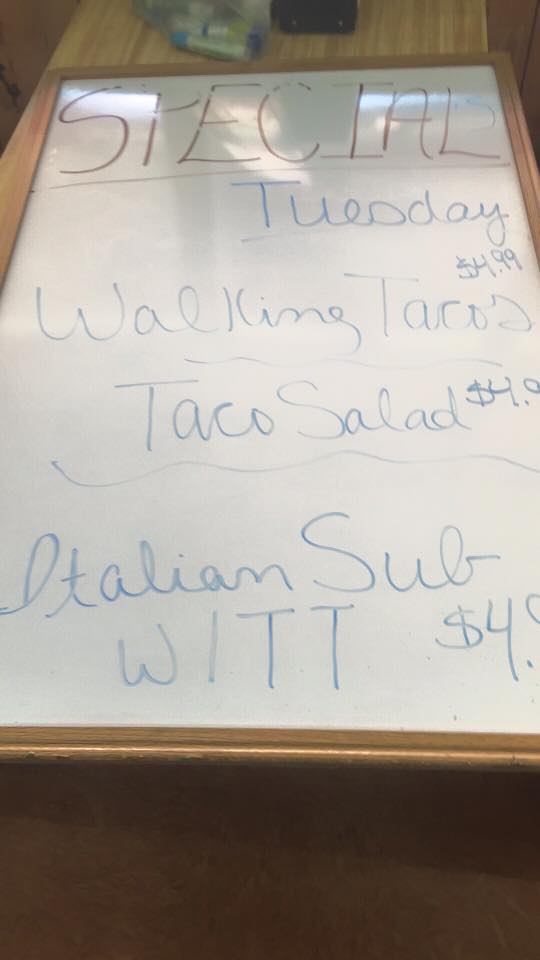 SPECIAL
Tuesday
$4.99
Walking Tacos
Taco Salad $4.9
Italian Sub
W/TT $4.9